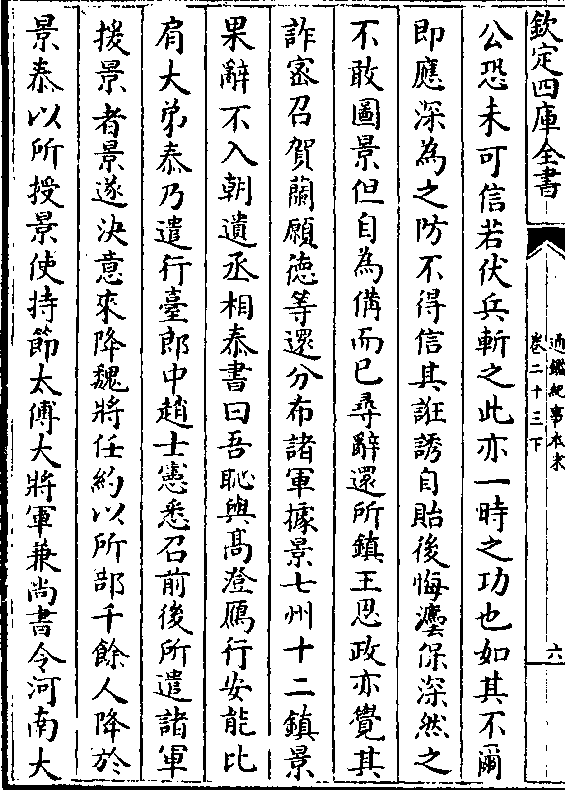 欽定四庫全書
通鑑紀事本末
卷二十三下
六
公恐未可信若伏兵斬之此亦一時之功也如其不爾
即應深為之防不得信其誑誘自貽後悔㙻保深然之
不敢圖景但自為備而已尋辭還所鎮王思政亦覺其
詐密召賀蘭願德等還分布諸軍據景七州十二鎮景
果辭不入朝遺丞相泰書曰吾恥與髙澄鴈行安能比
肩大弟泰乃遣行臺郎中趙士憲悉召前後所遣諸軍
援景者景遂決意來降魏將任約以所部千餘人降於
景泰以所授景使持節太傅大將軍兼尚書令河南大